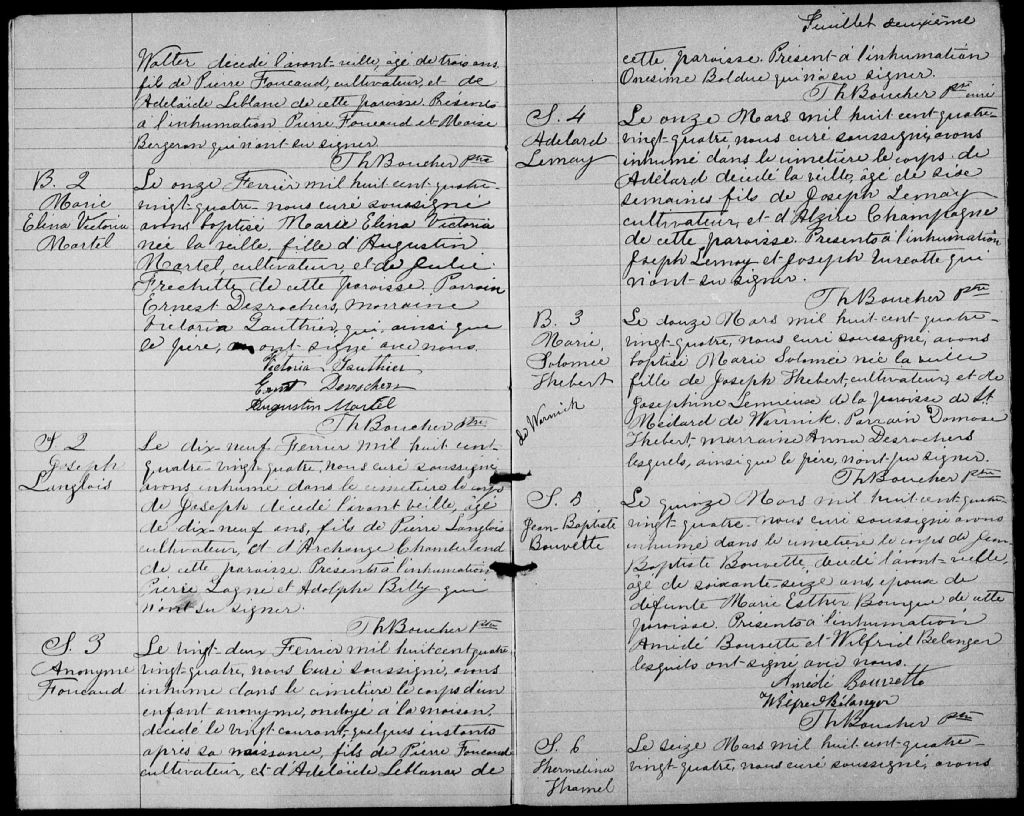 Walter decédé l'avant-veille, âgé de trois ans
fils de Pierre Foucaud, cultivateur, et de
Adelaïde Leblanc de cette paroisse. Présents
à l'inhumation Pierre Foucaud et Moïse
Bergeron qui n'ont su signer.
Th Boucher Ptre
B. 2
Marie
Elina Victoria
Martel
Le onze Fevrier mil huit cent-quatre-
vingt-quatre nous curé soussigné
avons baptisé Marie Elina Victoria
née la veille, fille d'Augustin
Martel, cultivateur, et de Julie
Frechette de cette paroisse. Parrain
Ernest Desrochers, marraine
Victoria Gauthier, qui, ainsi que
le père, ont signé avec nous.
Victoria Gauthier
Ernest Desrochers
Augustin Martel
Th Boucher Ptre
S. 2
Joseph
Langlois
Le dix-neuf Fevrier mil huit cent-
quatre-vingt-quatre, nous curé soussigné,
avons inhumé dans le cimetière le corps
de Joseph décédé l'avant veille, âgé
de dix-neuf ans, fils de Pierre Langlois
cultivateur, et d'Archange Chamberland
de cette paroisse. Presents à l'inhumation
Pierre Sogne et Adolphe Billy qui
n'ont su signer.
Th Boucher Ptre
S. 3
Anonyme
Foucaud
Le vingt-deux Fevrier mil huit cent quatre
vingt-quatre, nous Curé soussigné, avons
inhumé dans le cimetière le corps d'un
enfant anonyme, ondoyé à la maison,
décédé le vingt courant, quelques instants
après sa naissance, fils de Pierre Foucaud
cultivateur, et d'Adelaïde Leblanc de
Feuillet deuxième
cette paroisse. Présent à l'inhumation
Onesime Bolduc qui n'a su signer.
Th Boucher Ptre curé
S. 4
Adelard
Lemay
Le onze Mars mil huit cent-quatre-
vingt-quatre, nous curé soussigné, avons
inhumé dans le cimetière le corps de
Adélard décédé la veille, âgé de six
semaines fils de Joseph Lemay
cultivateur, et d'Alzire Champagne
de cette paroisse. Presents à l'inhumation
Joseph Lemay et Joseph Turcotte qui
n'ont su signer.
Th Boucher Ptre
B. 3
Marie,
Solomée
Thebert
de Warwick
Le douze Mars mil huit-cent-quatre-
vingt-quatre, nous curé soussigné, avons
baptisé Marie Solomée née la veille
fille de Joseph Thebert, cultivateur, et de
Josephine Lemieuse de la paroisse de St
Médard de Warwick. Parrain Damase
Thebert marraine Anna Desrochers
lesquels, ainsi que le père, n'ont pu signer.
Th Boucher Ptre
S. 5
Jean-Baptiste
Bouvette
Le quinze Mars mil huit cent-quatre
vingt-quatre nous curé soussigné avons
inhumé dans le cimetière le corps de Jean
Baptiste Bouvette, decédé l'avant-veille,
âgé de soixante-seize ans, époux de
defunte Marie Esther Bourque de cette
paroisse. Présents à l'inhumation
Amédé Bouvette et Wilfrid Bélanger
lesquels ont signé avec nous.
Amédé Bouvette
Wilfred Bélanger
Th Boucher Ptre
S. 6
Thermelina
Hamel
Le seize Mars mil huit cent-quatre-
vingt-quatre, nous curé soussigné, avons